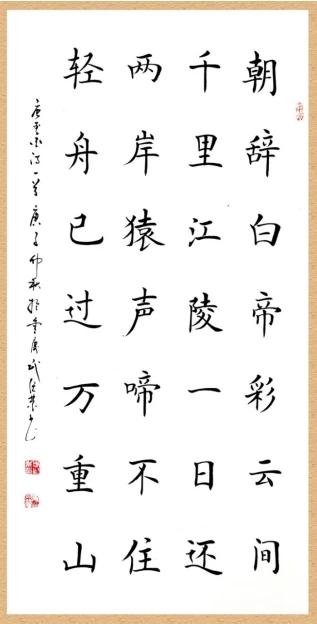 朝辞白帝彩云间
千里江陵一日还
两岸猿声啼不住
轻舟已过万重山
唐李白诗一首庚子仲秋